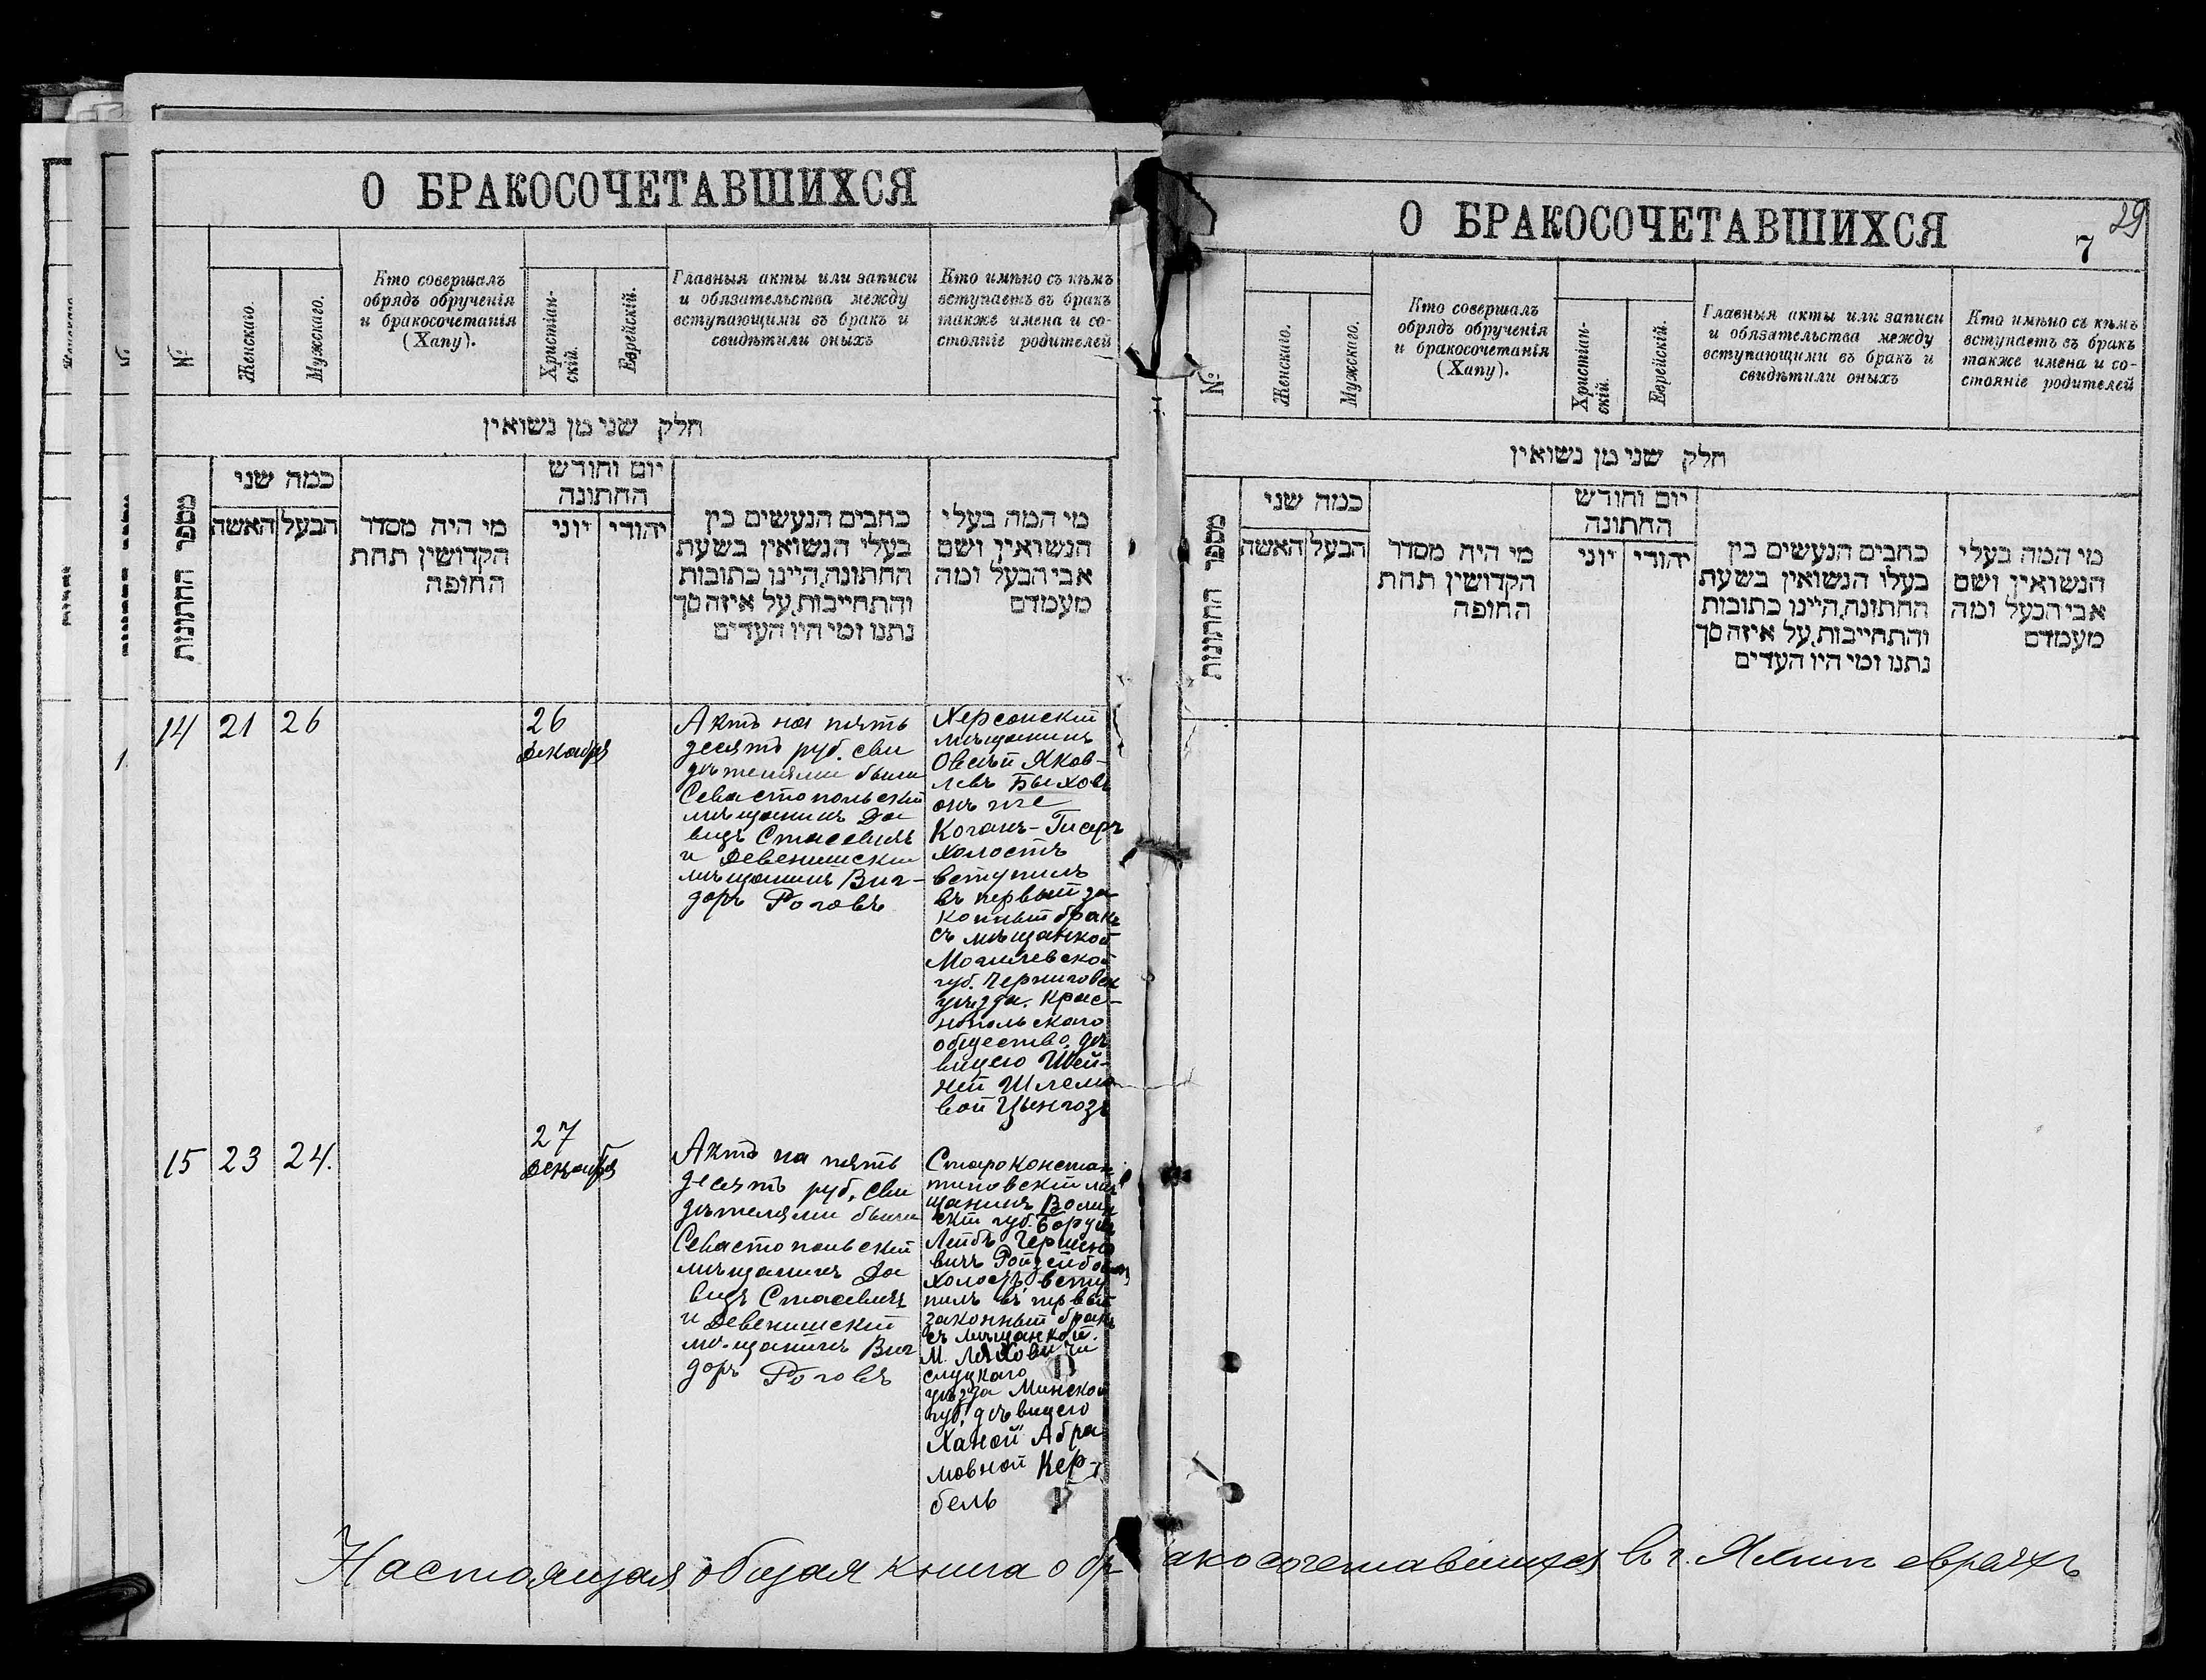 О БРАКОСОЧЕТАВШИХСЯ
№
Женскаго.
Мужскаго.
Кто совершалъ
обрядъ обрученія
и бракосочетанія
(Хапу).
Христіан-
скій.
Еврейскій.
Главныя акты или записи
и обязательства между
вступающими въ бракъ и
свидѣтили оныхъ
Кто имѣно съ кѣмъ
вступаетъ въ бракъ
также имена и со-
стояніе родителей
חלק שני מן נשואין
מספר החתונות
כמה שני
האשה
הבעל
מי היה מסדר
הקדושין תחת
החופה
יום וחודש
החתונה
יוני
יהודי
כתבים הנעשים בין
בעלי הנשואין בשעת
החתונה,היינו כתובות
והתחייבות,על איזה סך
נתנו ומי היו העדים
מי המה בעלי
הנשואין ושם
אבי הבעל ומה
מעמדם
14
21
26
26
декабря
Актъ на пять
десятъ руб. сви
дѣтелями были
Севастопольскій
мѣщанинъ Да
видъ Стасевичъ
и Девенишскій
мѣщанинъ Виг-
доръ Роговъ
Херсонскій
мѣщанинъ
Овсѣй Яков-
левъ Быховъ
онъ же
Коганъ-Гисеръ
холостъ
вступилъ
въ первый за
конный бракъ
съ мѣщанкой
Могилевской
губ. Чериковск
уѣзда. Крас-
нопольскаго
общество, дѣ
вицею Шей-
ней Шлемо
вой
15
23
24.
27
декабря
Актъ на пять
десятъ руб. сви
дѣтелями были
Севастопольскій
мѣщанинъ Да
видъ Стасевичъ
и Девенишскій
мѣщанинъ Виг
доръ Роговъ
Староконстан
тиновскій мѣ
щанинъ Волын
скій губ. Борухъ
Лейбъ Гершко
вичъ
холостъ, всту
пилъ въ первый
законный бракъ
съ мѣщанкой.
М. Ляховичи
слуцкаго
уѣзда Минской
губ. дѣвицею
Ханой Абра
мовной Кер-
бель
Настоящая общая книга о бр
О БРАКОСОЧЕТАВШИХСЯ
7
29
№
Женскаго.
Мужскаго.
Кто совершалъ
обрядъ обрученія
и бракосочетанія
(Хапу).
Христіан-
скій.
Еврейскій.
Главныя акты или записи
и обязательства между
вступающими въ бракъ и
свидѣтили оныхъ
Кто имѣно съ кѣмъ
вступаетъ въ бракъ
также имена и со-
стояніе родителей
חלק שני מן נשואין
מספר החתונות
כמה שני
האשה
הבעל
מי היה מסדר
הקדושין תחת
החופה
יום וחודש
החתונה
יוני
יהודי
כתבים הנעשים בין
בעלי הנשואין בשעת
החתונה,היינו כתובות
והתחייבות,על איזה סך
נתנו ומי היו העדים
מי המה בעלי
הנשואין ושם
אבי הבעל ומה
מעמדם
акосочетавшихся въ г. Ялтѣ евреяхъ